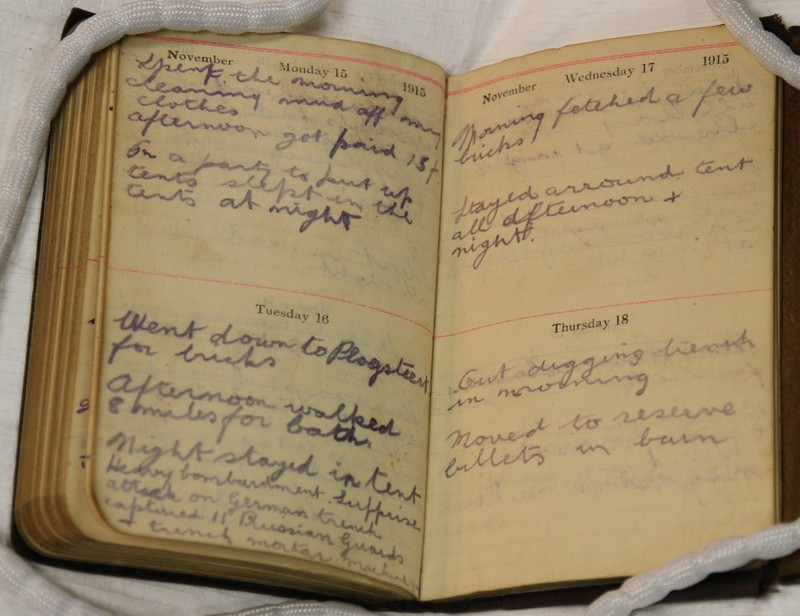 November Monday 15 1915
Spent the morning
cleaning mud off my
clothes
afternoon got paid 15f
On a party to put up
tents slept in the
tents at night
Tuesday 16
Went down to Plogsteert
for bricks
Afternoon walked
8 miles for bath.
Night stayed in tent
Heavy bombardment Supprise
attack on German trench
captured 11 Prussian Guards
+ trench mortar machine
November Wednesday 17 1915
Morning fetched a few
bricks
Stayed arround tent
all afternoon +
night.
Thursday 18
Out digging trench
in morning
Moved to reserve
billets in barn